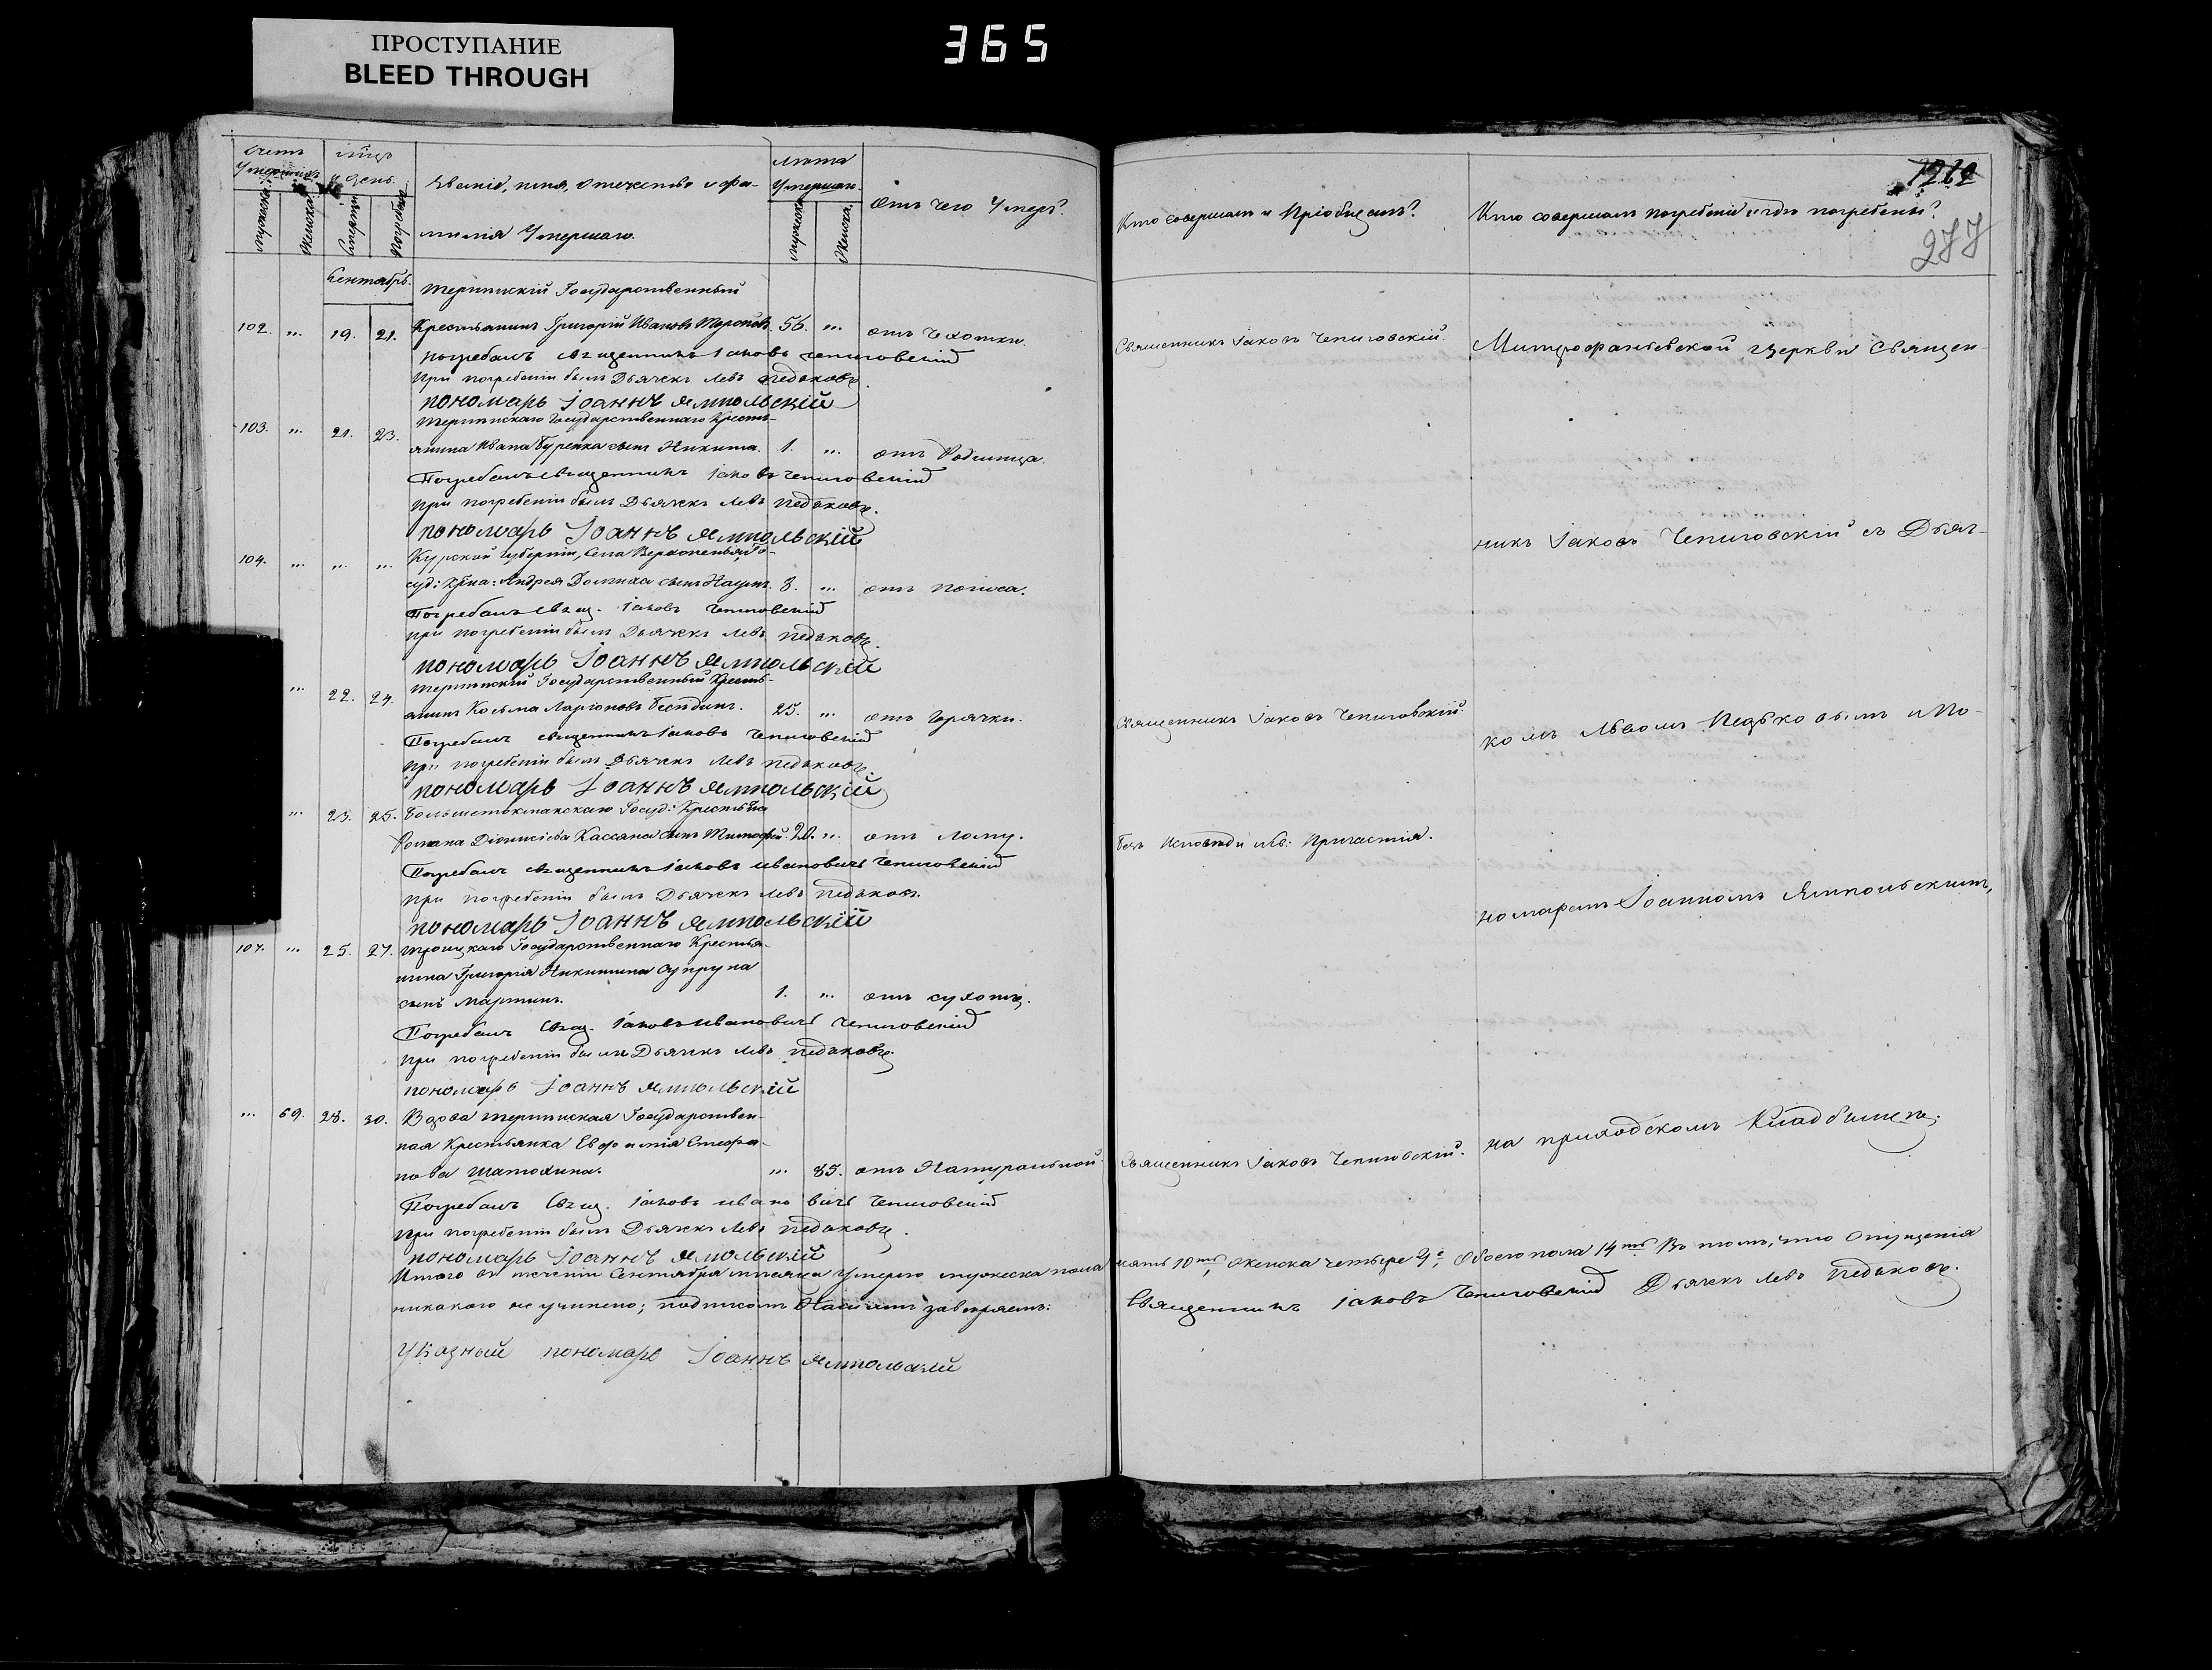 ПРОСТУПАНИЕ
BLEED THROUGH
365
Счетъ Умершихъ
мужска
женска
м҃цъ и день.
Смерти
Погребен
Званіе, имя, отечество и фа-
милія Умершаго.
Лѣта Умершаго.
мужска
женска.
Отъ чего Умеръ?
Кто совершалъ и Пріобщалъ?
Кто совершалъ погребеніе и гдѣ погребены?
1212
277
Сентябрь.
Терпинскій Государственный
102. „ 19. 21. Крестьянинъ Григорій Ивановъ 56. „ отъ Чахотки.
Священникъ Іаковъ Чепиговскій.
Митрофаньевской Церкви Священ-
погребалъ священникъ Іаковъ Чепиговскій
При погребеніи былъ Дьячекъ Левъ Педьковъ.
пономарь Іоаннъ Ямпольскій
103. „ 21. 23. Терпинскаго Государственнаго Кресть-
янина Ивана сынъ Никита. 1. „ отъ Родимца.
Погребалъ священникъ Іаковъ Чепиговскій
при погребеніи былъ Дьячекъ Левъ Педьковъ.
пономарь Іоаннъ Ямпольскій
никъ Іаковъ Чепиговскій съ Дьяч-
104. „ „ „ Курской губерніи, Села Го-
суд: Кр̃на: Андрея сынъ Наумъ. 3. „ отъ Поноса.
Погребалъ Свящ. Іаковъ Чепиговскій
при погребеніи былъ Дьячекъ Левъ Педьковъ.
пономарь Іоаннъ Ямпольскій
„ 22. 24. Терпинскій Государственный Кресть-
янинъ Косьма Ларіоновъ Бесѣдинъ. 25. „ отъ Горячки.
Священникъ Іаковъ Чепиговскій.
комъ Львомъ Педьковымъ и По-
Погребалъ священникъ Іаковъ Чепиговскій
При погребеніи былъ Дьячекъ Левъ Педьковъ.
пономарь Іоаннъ Ямпольскій
„ 23. 25. Большетокмакскаго Госуд: Крестьяна
Романа Діонисіева Кассяна сынъ Тимофей. „ отъ Лому.
Безъ Исповѣди и Св: Причастія.
Погребалъ священникъ Іаковъ Ивановичъ Чепиговскій
при погребеніи былъ Дьячекъ Левъ Педьковъ.
пономарь Іоаннъ Ямпольскій
номаремъ Іоанномъ Ямпольскимъ,
107. „ 25. 27. Троицкаго Государственнаго Крестья-
нина Григорія Никитина Супруна
сынъ Мартинъ. 1. „ отъ сухотъ.
Погребалъ Свящ. Іаковъ Ивановичъ Чепиговскій
при погребеніи былъ Дьячекъ Левъ Педьковъ.
пономарь Іоаннъ Ямпольскій
„ 69. 28. 30. Вдова Терпинская Государствен-
ная Крестьянка Евфимія Стефа-
нова Шатохина. „ 85. отъ Натуральной.
Священникъ Іаковъ Чепиговскій.
на приходскомъ Кладбищѣ.
Погребалъ Свящ. Іаковъ Ивановичъ Чепиговскій
при погребеніи былъ Дьячекъ Левъ Педьковъ.
пономарь Іоаннъ Ямпольскій
Итого въ теченіи Сентября мѣсяца Умерло мужеска пола 10ть, женска четыре 4е, Обоего пола 14ть Въ томъ, что Опущенія
никакого не учинено; подписомъ Нашимъ завѣряемъ:
Священникъ Іаковъ Чепиговскій Дьячекъ Левъ Педьковъ.
Указный пономарь Іоаннъ Ямпольскій